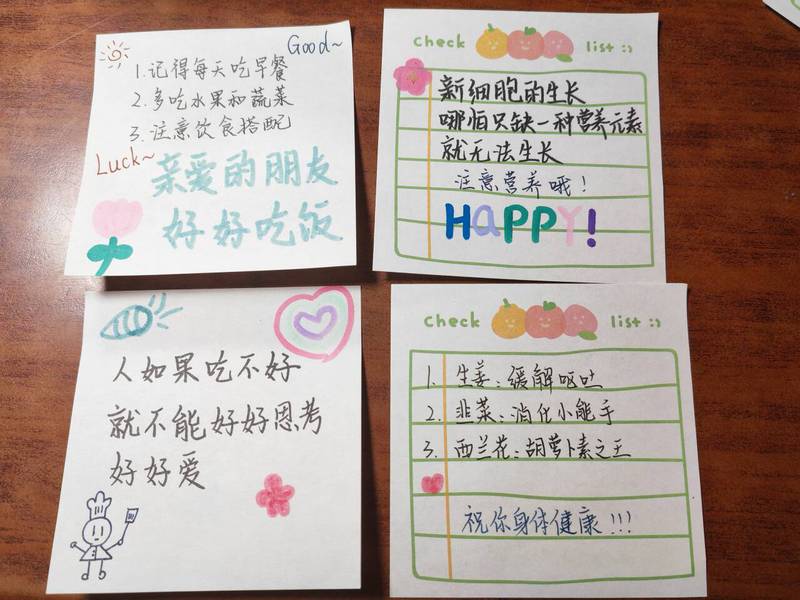 Good~
1.记得每天吃早餐
2.多吃水果和蔬菜
3.注意饮食搭配
Luck~
亲爱的朋友
好好吃饭
check list :)
新细胞的生长
哪怕只缺一种营养元素
就无法生长
注意营养哦!
HAPPY!
人如果吃不好
就不能好好思考
好好爱
check list :)
1. 生姜:缓解呕吐
2. 韭菜:消化小能手
3. 西兰花:胡萝卜素之王
祝你身体健康!!!